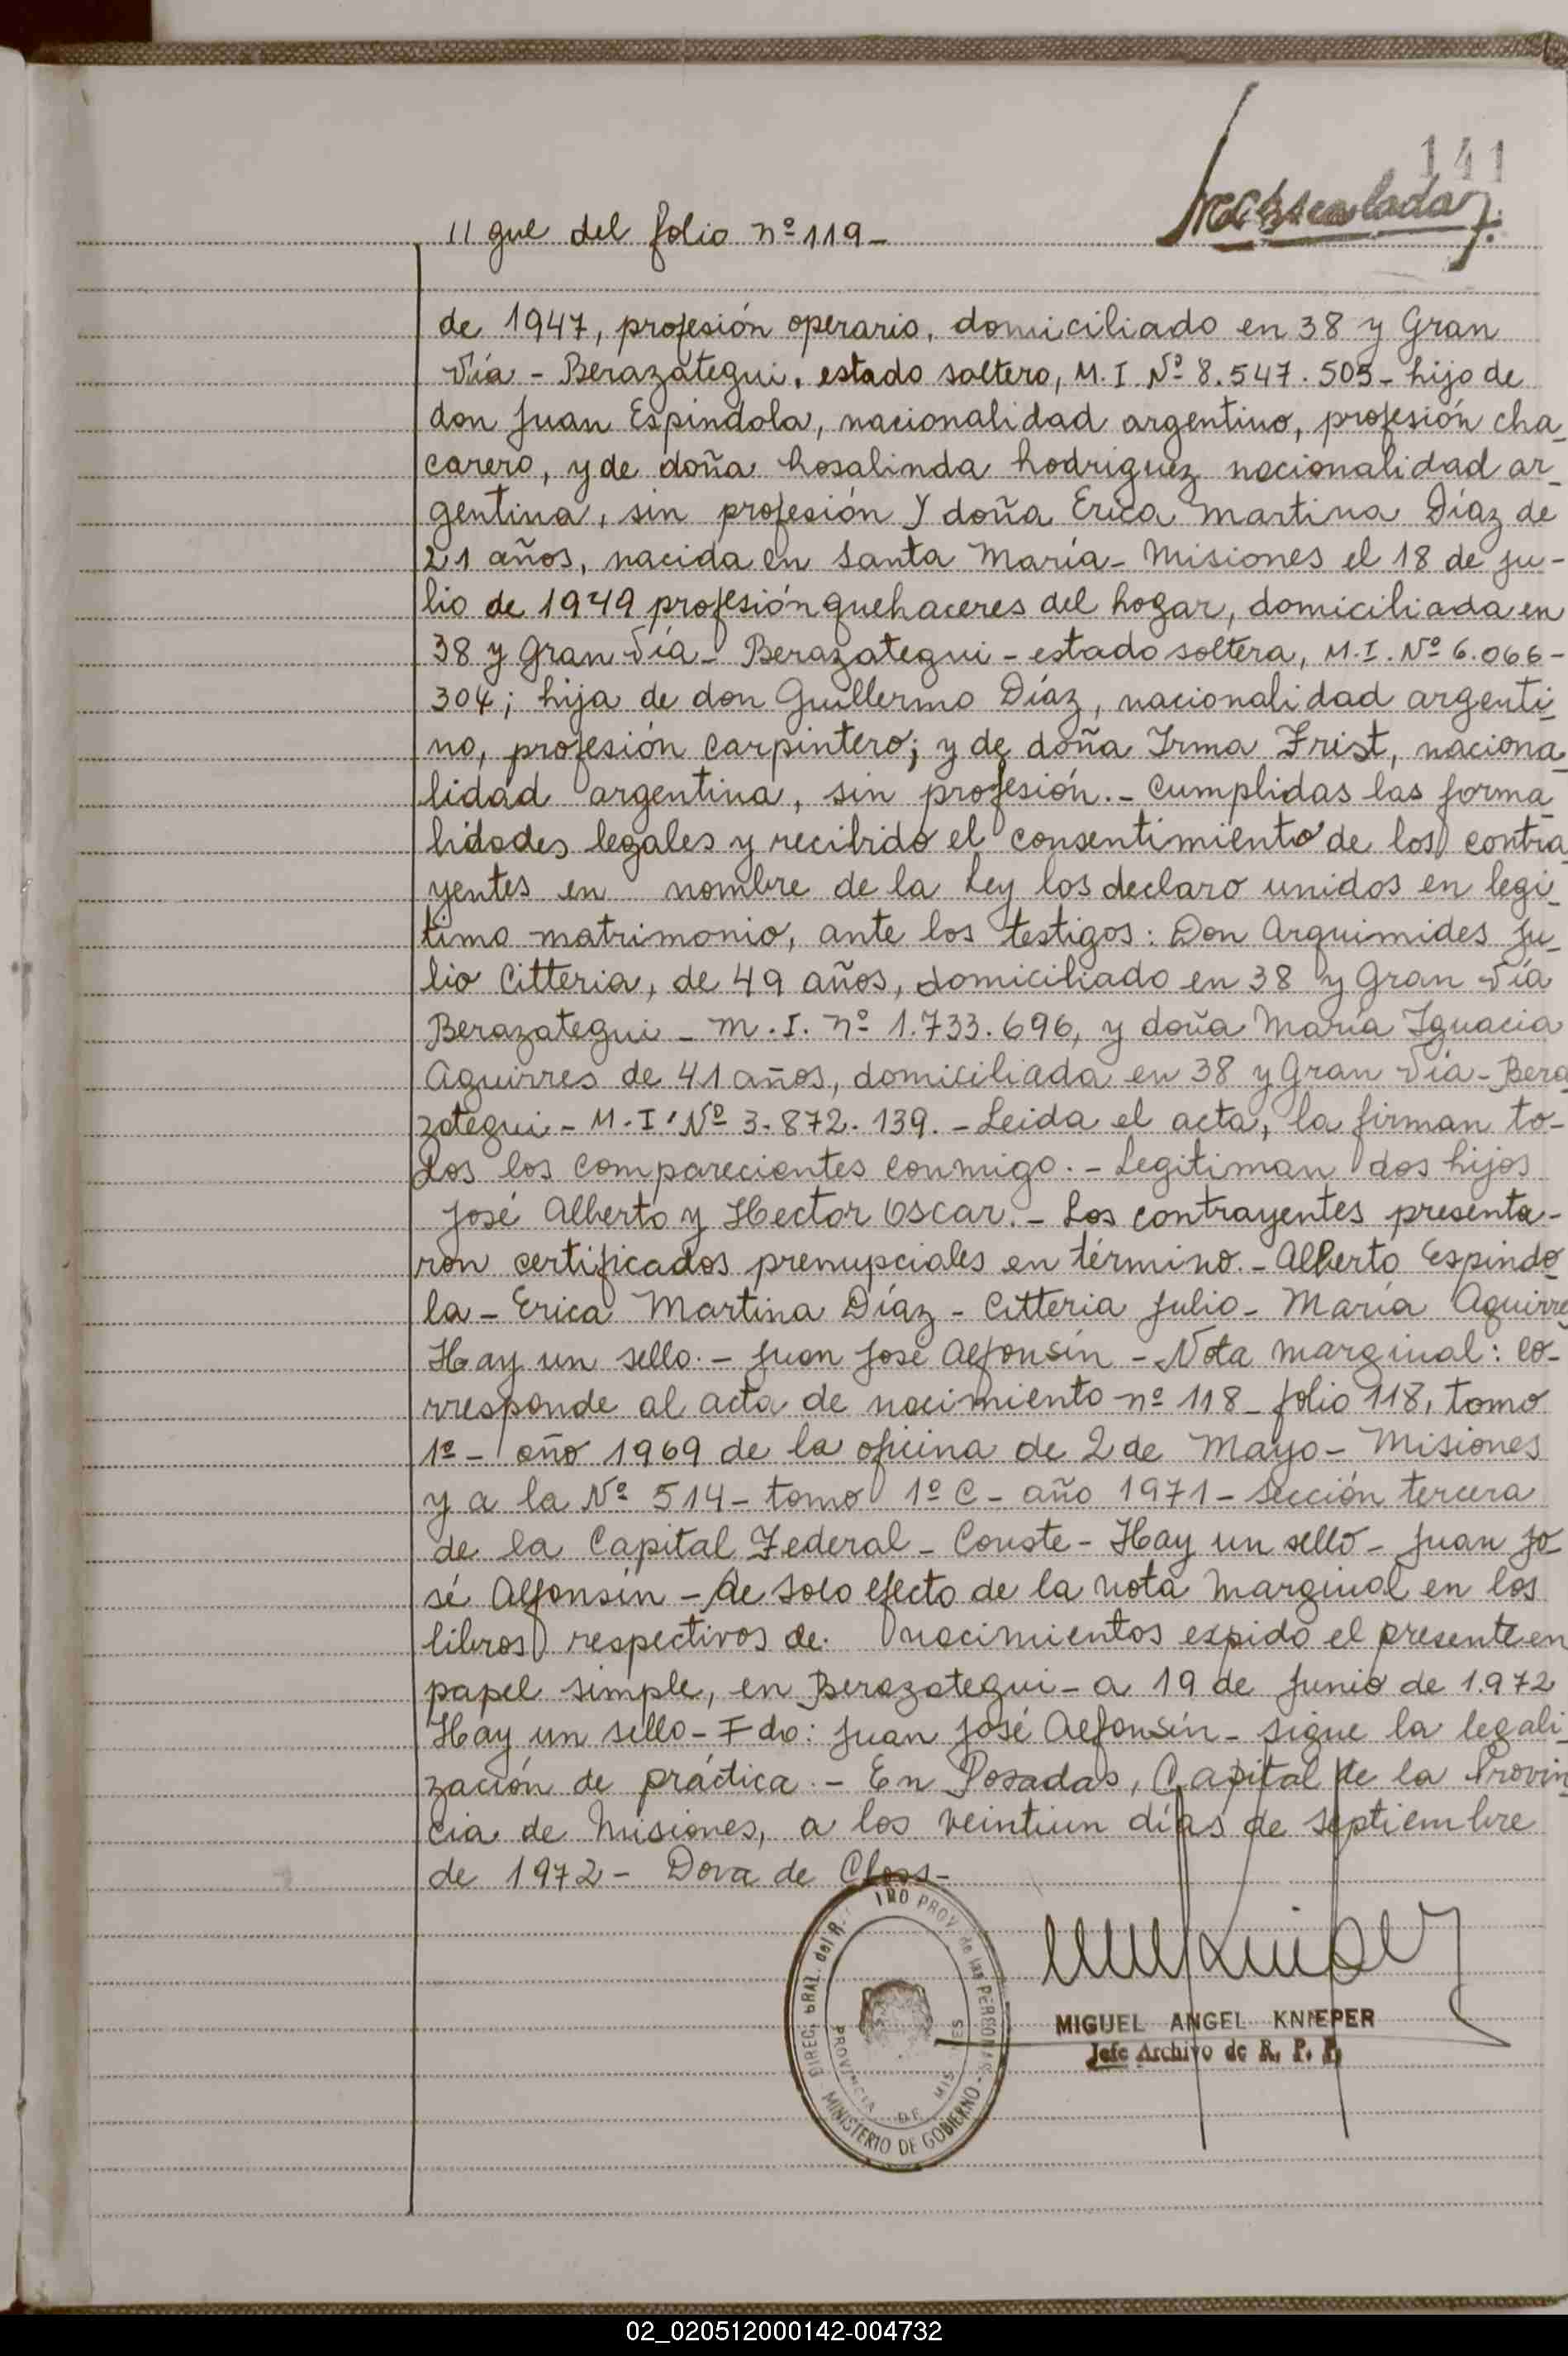 141
11 gue del folio nº 119-
de 1947, profesión operario, domiciliado en 38 y Gran
Vía - Berazategui, estado soltero, M. I. Nº 8.547.505- hijo de
don Juan Espindola, nacionalidad argentino, profesión cha_
carero, y de doña Rosalinda Rodriguez nacionalidad ar_
gentina, sin profesión Y doña Erica Martina Díaz de
21 años, nacida en Santa María - Misiones el 18 de ju-
lio de 1949 profesión quehaceres del hogar, domiciliada en
38 y Gran Vía - Berazategui - estado soltera, M.I. Nº 6.066-
304; hija de don Guillermo Díaz, nacionalidad argenti_
no, profesión carpintero; y de doña Irma Frist, naciona_
lidad argentina, sin profesión. - Cumplidas las forma_
lidades legales y recibido el consentimiento de los contra_
yentes en nombre de la Ley los declaro unidos en legi_
timo matrimonio, ante los testigos: Don Arquimides Ju_
lio Citteria, de 49 años, domiciliado en 38 y Gran Vía
Berazategui - M. I. nº 1.733.696, y doña María Ignacia
Aguirres de 41 años, domiciliada en 38 y Gran Vía - Bera
zategui - M. I. Nº 3.872.139. - Leida el acta, la firman to-
dos los comparecientes conmigo. - Legitiman dos hijos
José Alberto y Hector Oscar. - Los contrayentes presenta-
ron certificados prenupciales en término. - Alberto Espindo_
la - Erica Martina Díaz - Citteria Julio - María Aguirre
Hay un sello. - Juan José Alfonsín - Nota marginal: Co-
rresponde al acta de nacimiento nº 118 - folio 118, tomo
1º - año 1969 de la oficina de 2 de Mayo - Misiones
y a la Nº 514 - tomo 1º C - año 1971 - Sección tercera
de la Capital Federal - Conste - Hay un sello - Juan Jo_
sé Alfonsín - Al solo efecto de la nota marginal en los
libros respectivos de nacimientos expido el presente en
papel simple, en Berazategui - a 19 de Junio de 1.972
Hay un sello - Fdo: Juan José Alfonsín - sigue la legali_
zación de práctica. - En Posadas, Capital de la Provin
cia de Misiones, a los veintiun días de septiembre
de 1972 - Dora de Closs -
DIREC. GRAL. del R. PROV. de las PERSONAS
PROVINCIA DE MISIONES
MINISTERIO DE GOBIERNO
MIGUEL ANGEL KNIEPER
Jefe Archivo de R. P. P.
02_020512000142-004732